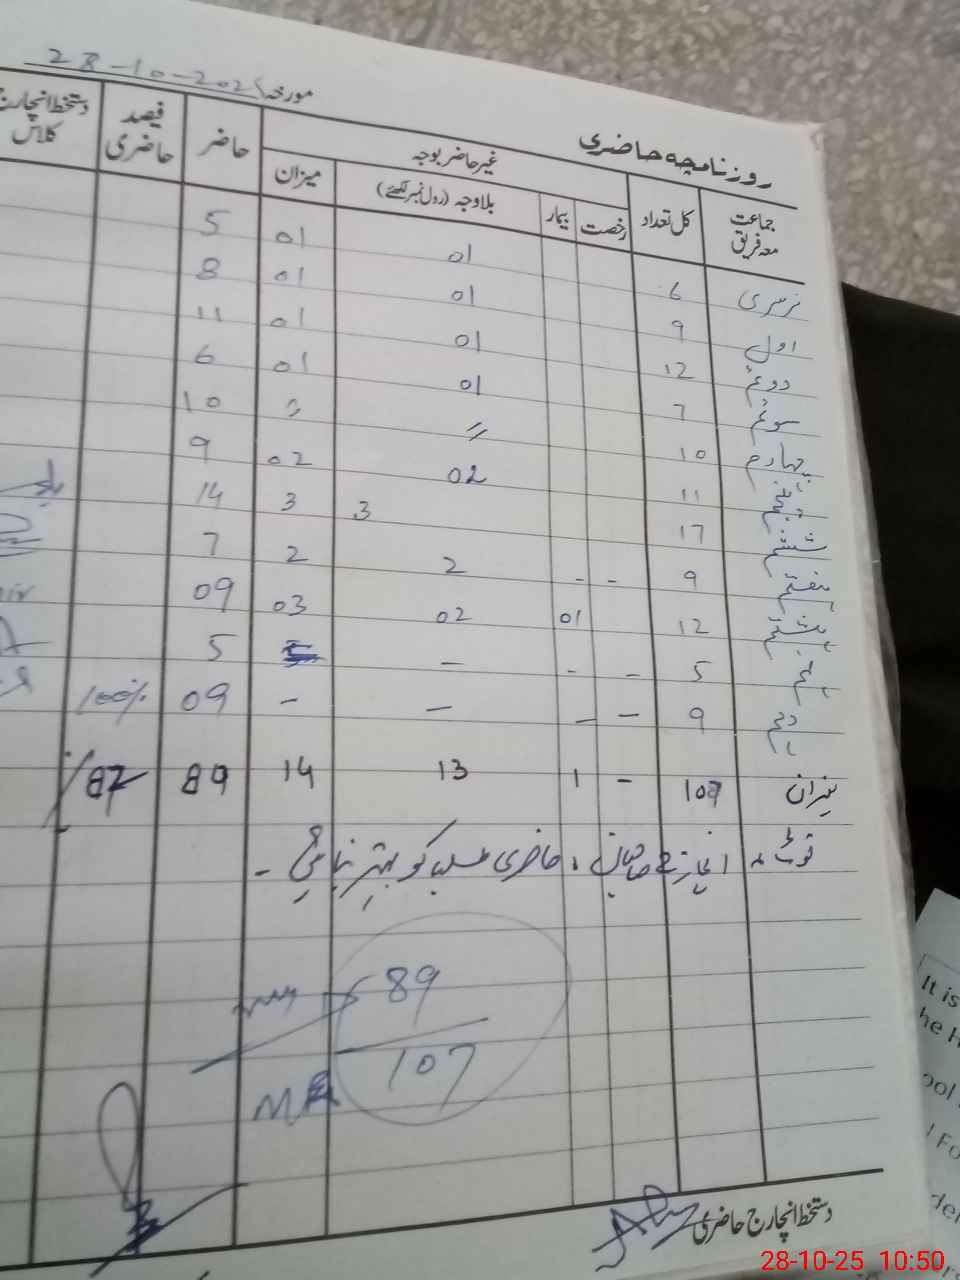 مورخہ 28-10-202
روزنامچہ حاضری
جماعت معہ فریق کل تعداد غیر حاضر بوجہ حاضر فیصد حاضری دستخط انچارج کلاس
رخصت بیمار بلاوجہ (رول نمبر لکھئے) میزان
نرسری 6 01 01 5
اول 9 01 01 8
دوئم 12 01 01 11
سوئم 7 01 01 6
چہارم 10 〃 〃 10
پنجم 11 02 02 9
ششم 17 3 3 14
ہفتم 9 - - 2 2 7
ہشتم 12 01 02 03 09
نہم 5 - - - 5
دہم 9 - - - - 09 100%
میزان 107 - 1 13 14 89 87%
نوٹ انچارج صاحبان، حاضری کو بہتر بنائیں -
89
107
دستخط انچارج حاضری
28-10-25 10:50
It is
he H
ool